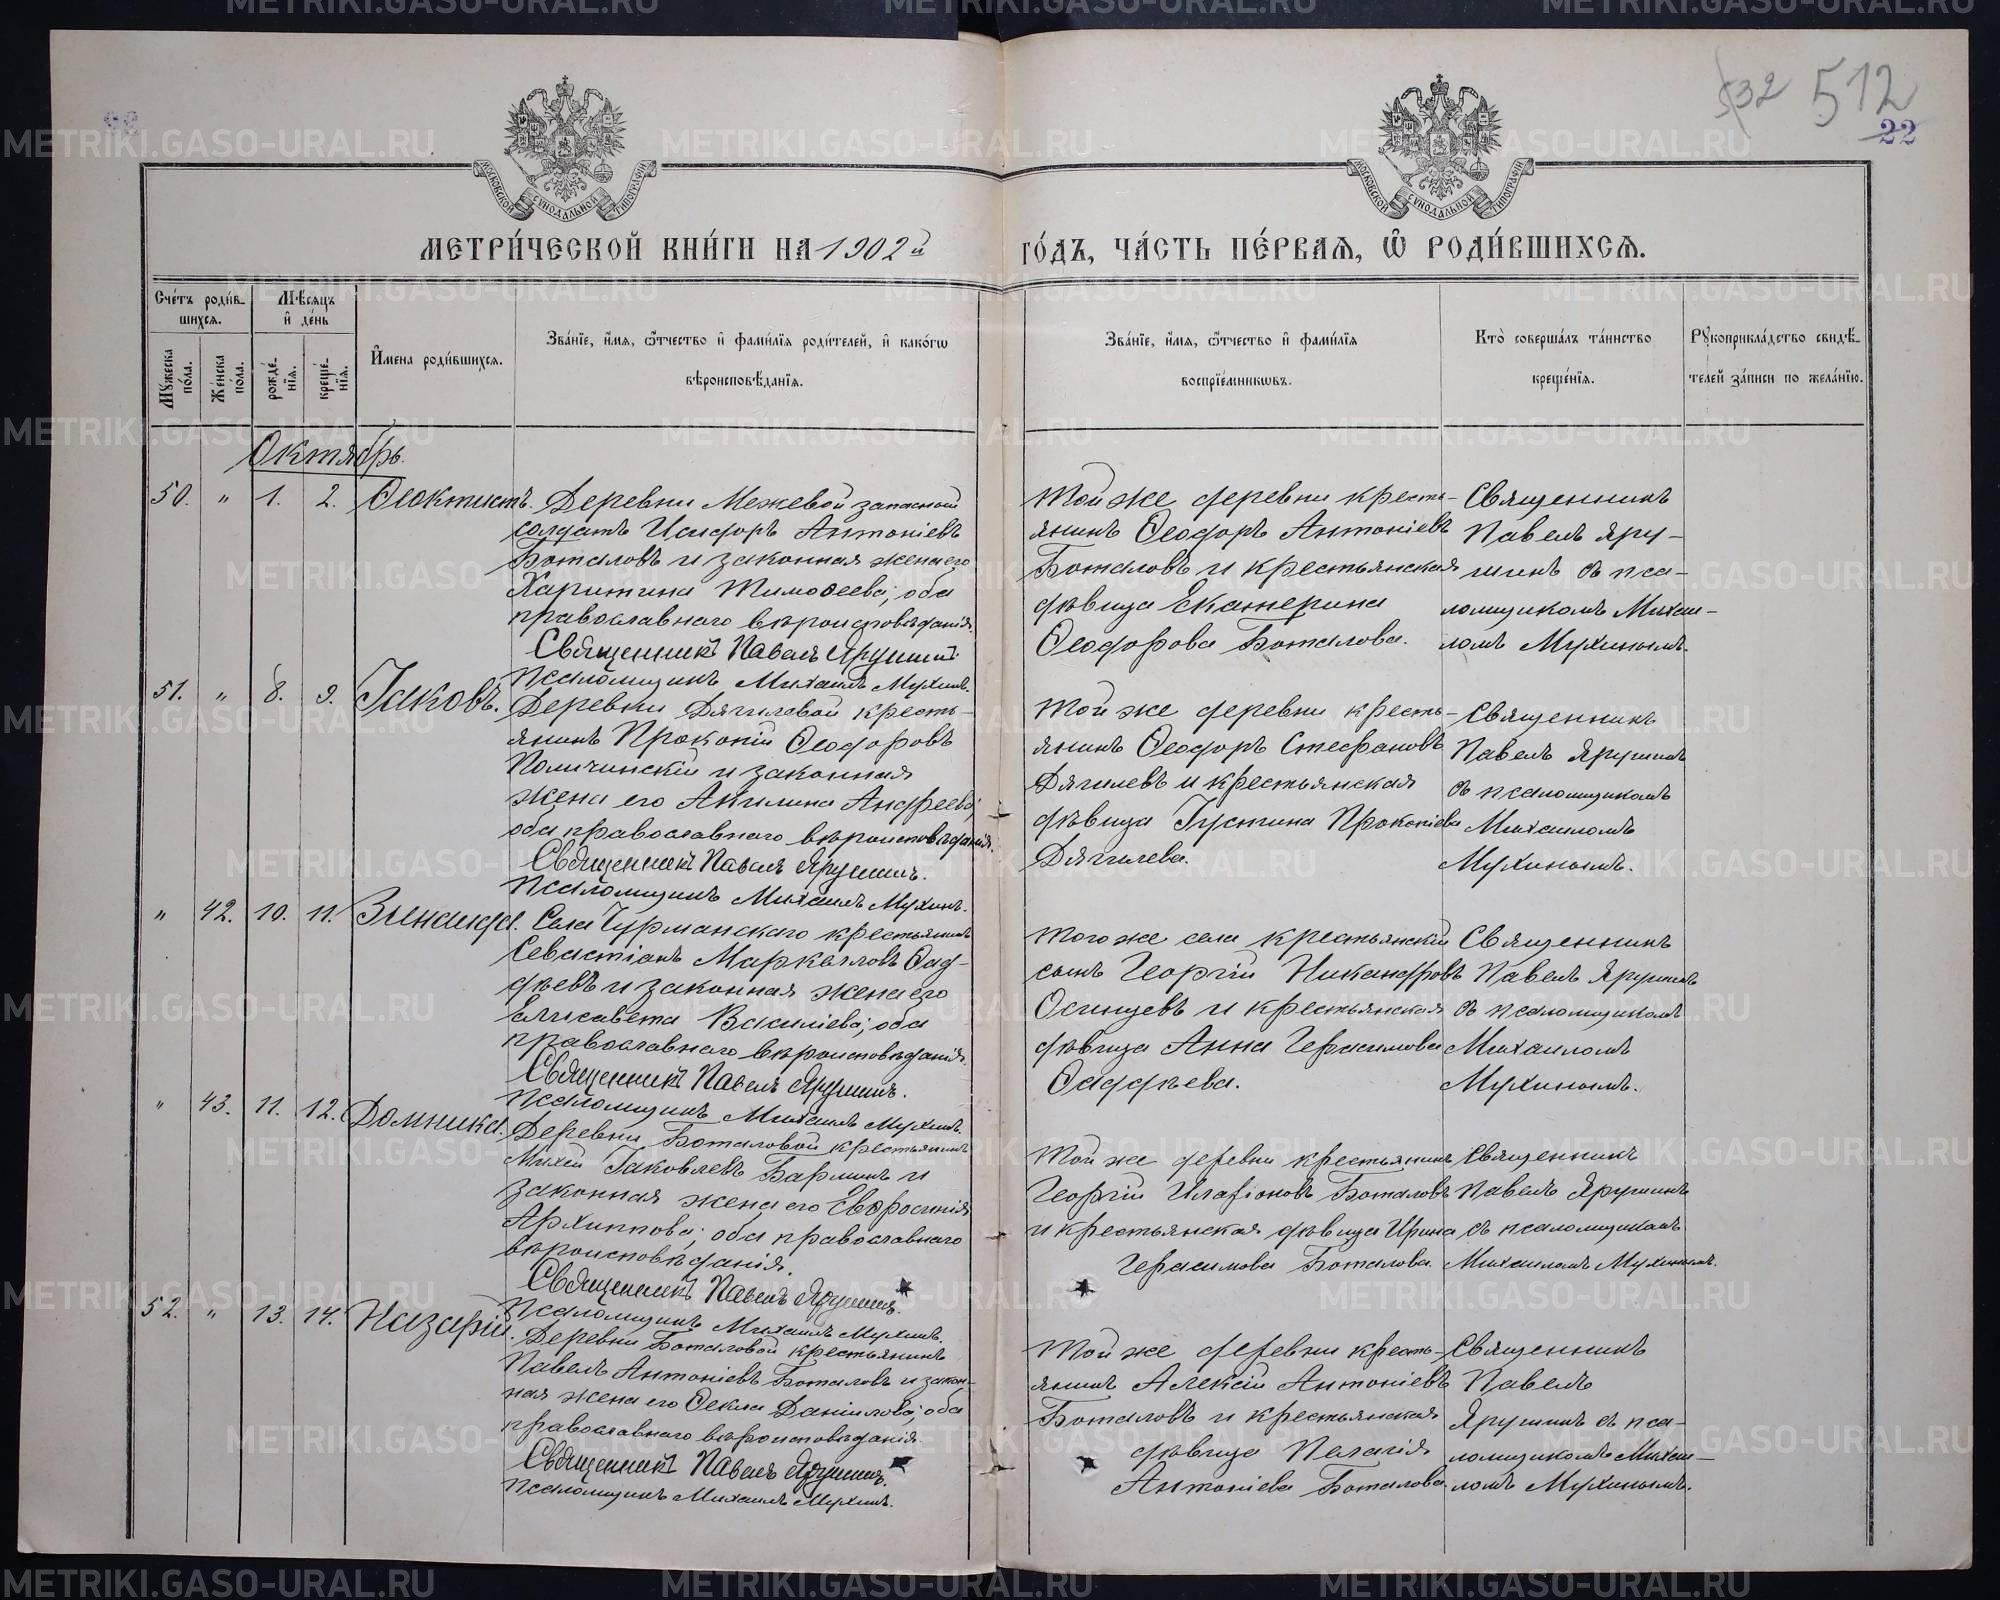 532 512
22
МОСКОВСКОЙ СѴНОДАЛЬНОЙ ТИПОГРАФІИ
МОСКОВСКОЙ СѴНОДАЛЬНОЙ ТИПОГРАФІИ
МЕТРИ́ЧЕСКОЙ КНИ́ГИ НА 1902й ГО́ДЪ, ЧА́СТЬ ПЕ́РВАѦ, Ѡ҆ РОДИ́ВШИХСѦ.
Сче́тъ роди́в-
шихсѧ.
Мѣ́сѧцъ
и҆ де́нь
Мꙋ́жеска
по́ла.
Же́нска
по́ла.
рожде́-
нїѧ.
креще́-
нїѧ.
И҆мена роди́вшихсѧ.
Зва́нїе, и҆́мѧ, ѻ҆́тчество и҆ фами́лїѧ роди́телей, и҆ како́гѡ
вѣроисповѣ́данїѧ.
Зва́нїе, и҆́мѧ, ѻ҆́тчество и҆ фами́лїѧ
воспрїе́мникѡвъ.
Кто̀ соверша́лъ та́инство
креще́нїѧ.
Рꙋкоприкла́дство свидѣ́-
телей за́писи по жела́нїю.
Октябрь.
50. " 1. 2. Ѳеоктистъ.
Деревни Межевой запасной
солдатъ Исидоръ Антоніевъ
Боталовъ и законная жена его
Харитина Тимоѳеева; оба
православнаго вѣроисповѣданія.
Священникъ Павелъ Ярушинъ.
Псаломщикъ Михаилъ Мухинъ.
Той же деревни кресть-
янинъ Ѳеодоръ Антоніевъ
Боталовъ и крестьянская
дѣвица Екатерина
Ѳеодорова Боталова.
Священникъ
Павелъ Яру-
шинъ съ пса-
ломщикомъ Михаи-
ломъ Мухинымъ.
51. " 8. 9. Іаковъ.
Деревни Дягилевой кресть-
янинъ Прокопій Ѳеодоровъ
Поличинскій и законная
жена его Акилина Андреева;
оба православнаго вѣроисповѣданія.
Священникъ Павелъ Ярушинъ.
Псаломщикъ Михаилъ Мухинъ.
Той же деревни кресть-
янинъ Ѳеодоръ Стефановъ
Дягилевъ и крестьянская
дѣвица Іустина Прокопіева
Дягилева.
Священникъ
Павелъ Ярушинъ
съ псаломщикомъ
Михаиломъ
Мухинымъ.
" 42. 10. 11. Зинаида.
Села Чурманскаго крестьянинъ
Севастіанъ Маркелловъ Ѳад-
дѣевъ и законная жена его
Елисавета Василіева; оба
православнаго вѣроисповѣданія.
Священникъ Павелъ Ярушинъ.
Псаломщикъ Михаилъ Мухинъ.
Того же села крестьянскій
сынъ Георгій Никандровъ
Осинцевъ и крестьянская
дѣвица Анна Герасимова
Ѳаддѣева.
Священникъ
Павелъ Ярушинъ
съ псаломщикомъ
Михаиломъ
Мухинымъ.
" 43. 11. 12. Домника.
Деревни Боталовой крестьянинъ
Михей Іаковлевъ Бармин и
законная жена его Евфросинія
Архиппова; оба православнаго
вѣроисповѣданія.
Священникъ Павелъ Ярушинъ.
Псаломщикъ Михаилъ Мухинъ.
Той же деревни крестьянинъ
Георгій Иларіоновъ Боталовъ
и крестьянская дѣвица Ирина
Герасимова Боталова.
Священникъ
Павелъ Ярушинъ
съ псаломщикомъ
Михаиломъ Мухинымъ.
52. " 13. 14. Назарій.
Деревни Боталовой крестьянинъ
Павелъ Антоніевъ Боталовъ и закон-
ная жена его Ѳекла Даніилова; оба
православнаго вѣроисповѣданія.
Священникъ Павелъ Ярушинъ.
Псаломщикъ Михаилъ Мухинъ.
Той же деревни кресть-
янинъ Алексій Антоніевъ
Боталовъ и крестьянская
дѣвица Пелагія
Антоніева Боталова.
Священникъ
Павелъ
Ярушинъ съ пса-
ломщикомъ Михаи-
ломъ Мухинымъ.
METRIKI.GASO-URAL.RU